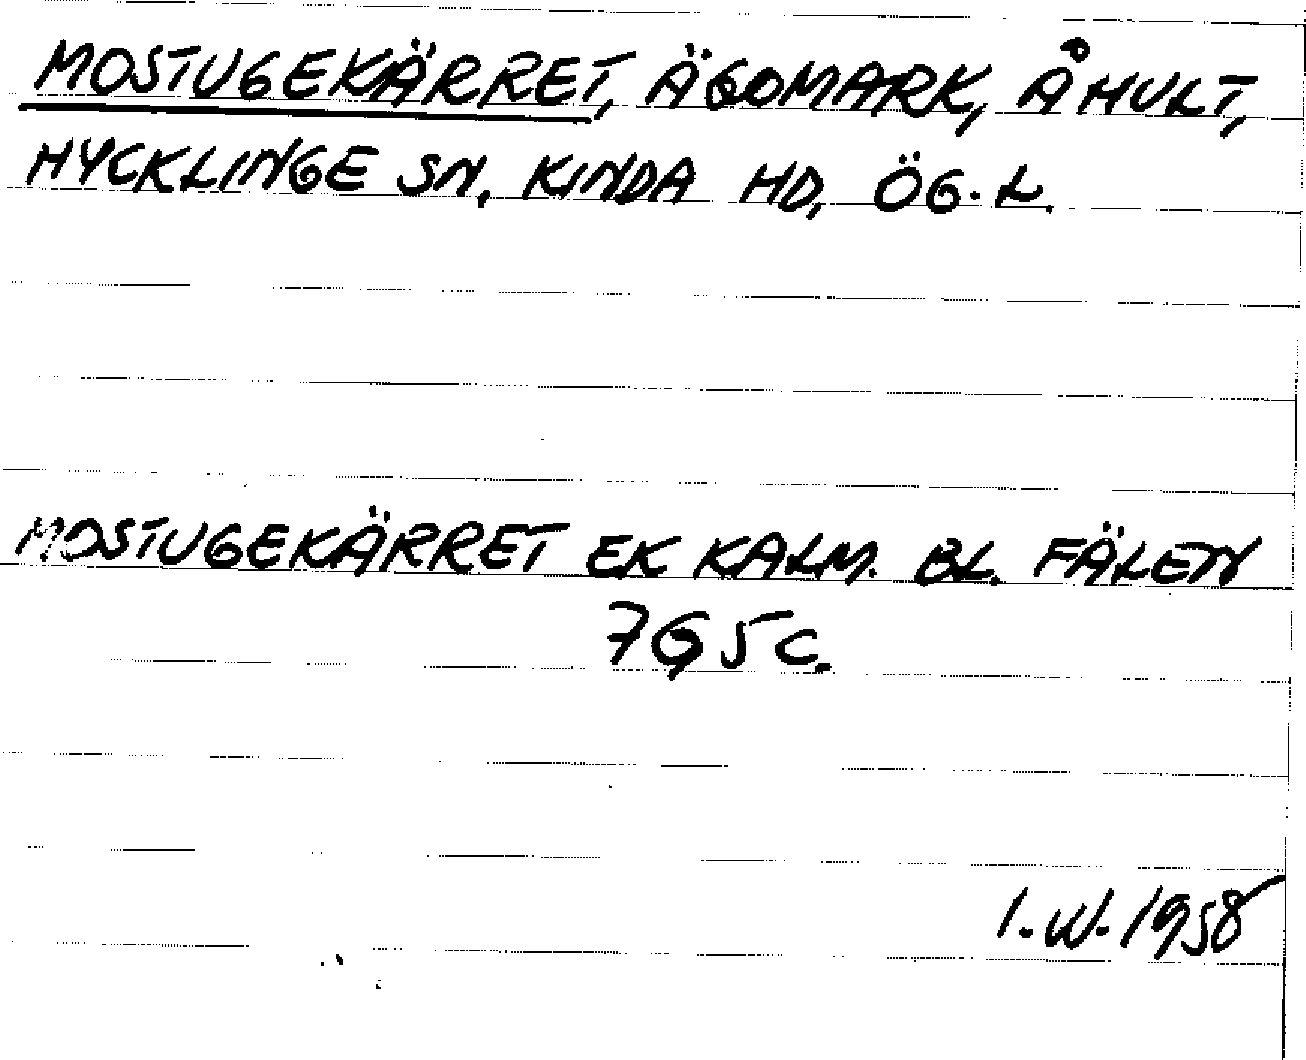 MOSTUGEKÄRRET, ÄGOMARK, ÅHULT,
HYCKLINGE SN, KINDA HD, ÖG.L.
MOSTUGEKÄRRET EK KALM. BL. FÄLEN
7G5c.
I.W. 1958